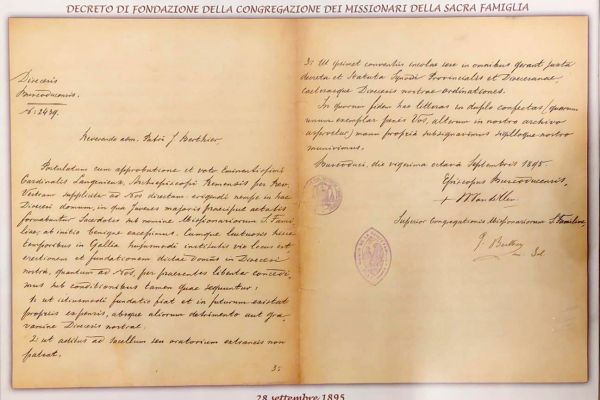 DECRETO DI FONDAZIONE DELLA CONGREGAZIONE DEI MISSIONARI DELLA SACRA FAMIGLIA
Dioecesis
Buscoducensis.
N: 2439.
Reverendo adm. Patri J Berthier
Postulatum cum approbatione et voto Eminentissimi
Cardinalis Langenieux, Archiepiscopi Remensis per Rev.
Vestram suppliciter ad Nos directam erigendi nempe in hac
Dioecesi domum, in qua Juvenes majoris praecipue aetatis
formabuntur Sacerdotes sub nomine Missionariorum S. Fami
liae, ab initio benigne excepimus. Cumque luctuosis hisce
temporibus in Gallia hujusmodi institutis vix locus est
erectionem et fundationem dictae Domûs in Dioecesi
nostrâ, quantum ad Nos, per praesentes libenter concedi
mus sub conditionibus tamen quae sequuntur:
1: ut istiusmodi fundatio fiat et in futurum existat
propriis expensis, absque aliorum detrimento aut gra
vamine Dioecesis nostrae.
2: ut aditus ad sacellum seu oratorium extraneis non
pateat.
3:
3: Ut ipsius conventûs incolae sese in omnibus gerant juxta
decreta et Statuta Synodi Provincialis et Dioecesanae,
caeterasque Dioecesis nostrae ordinationes.
In quorum fidem has litteras in duplo confectas, quarum
unum exemplar penes Vos, alterum in nostro archivo
asservetur, manu propriâ subsignavimus sigilloque nostro
munivimus.
Buscoduci, die vigesima octava Septembris 1895.
Episcopus Buscoducensis,
Superior Congregationis Missionariorum S. Familiae,
28 settembre 1895